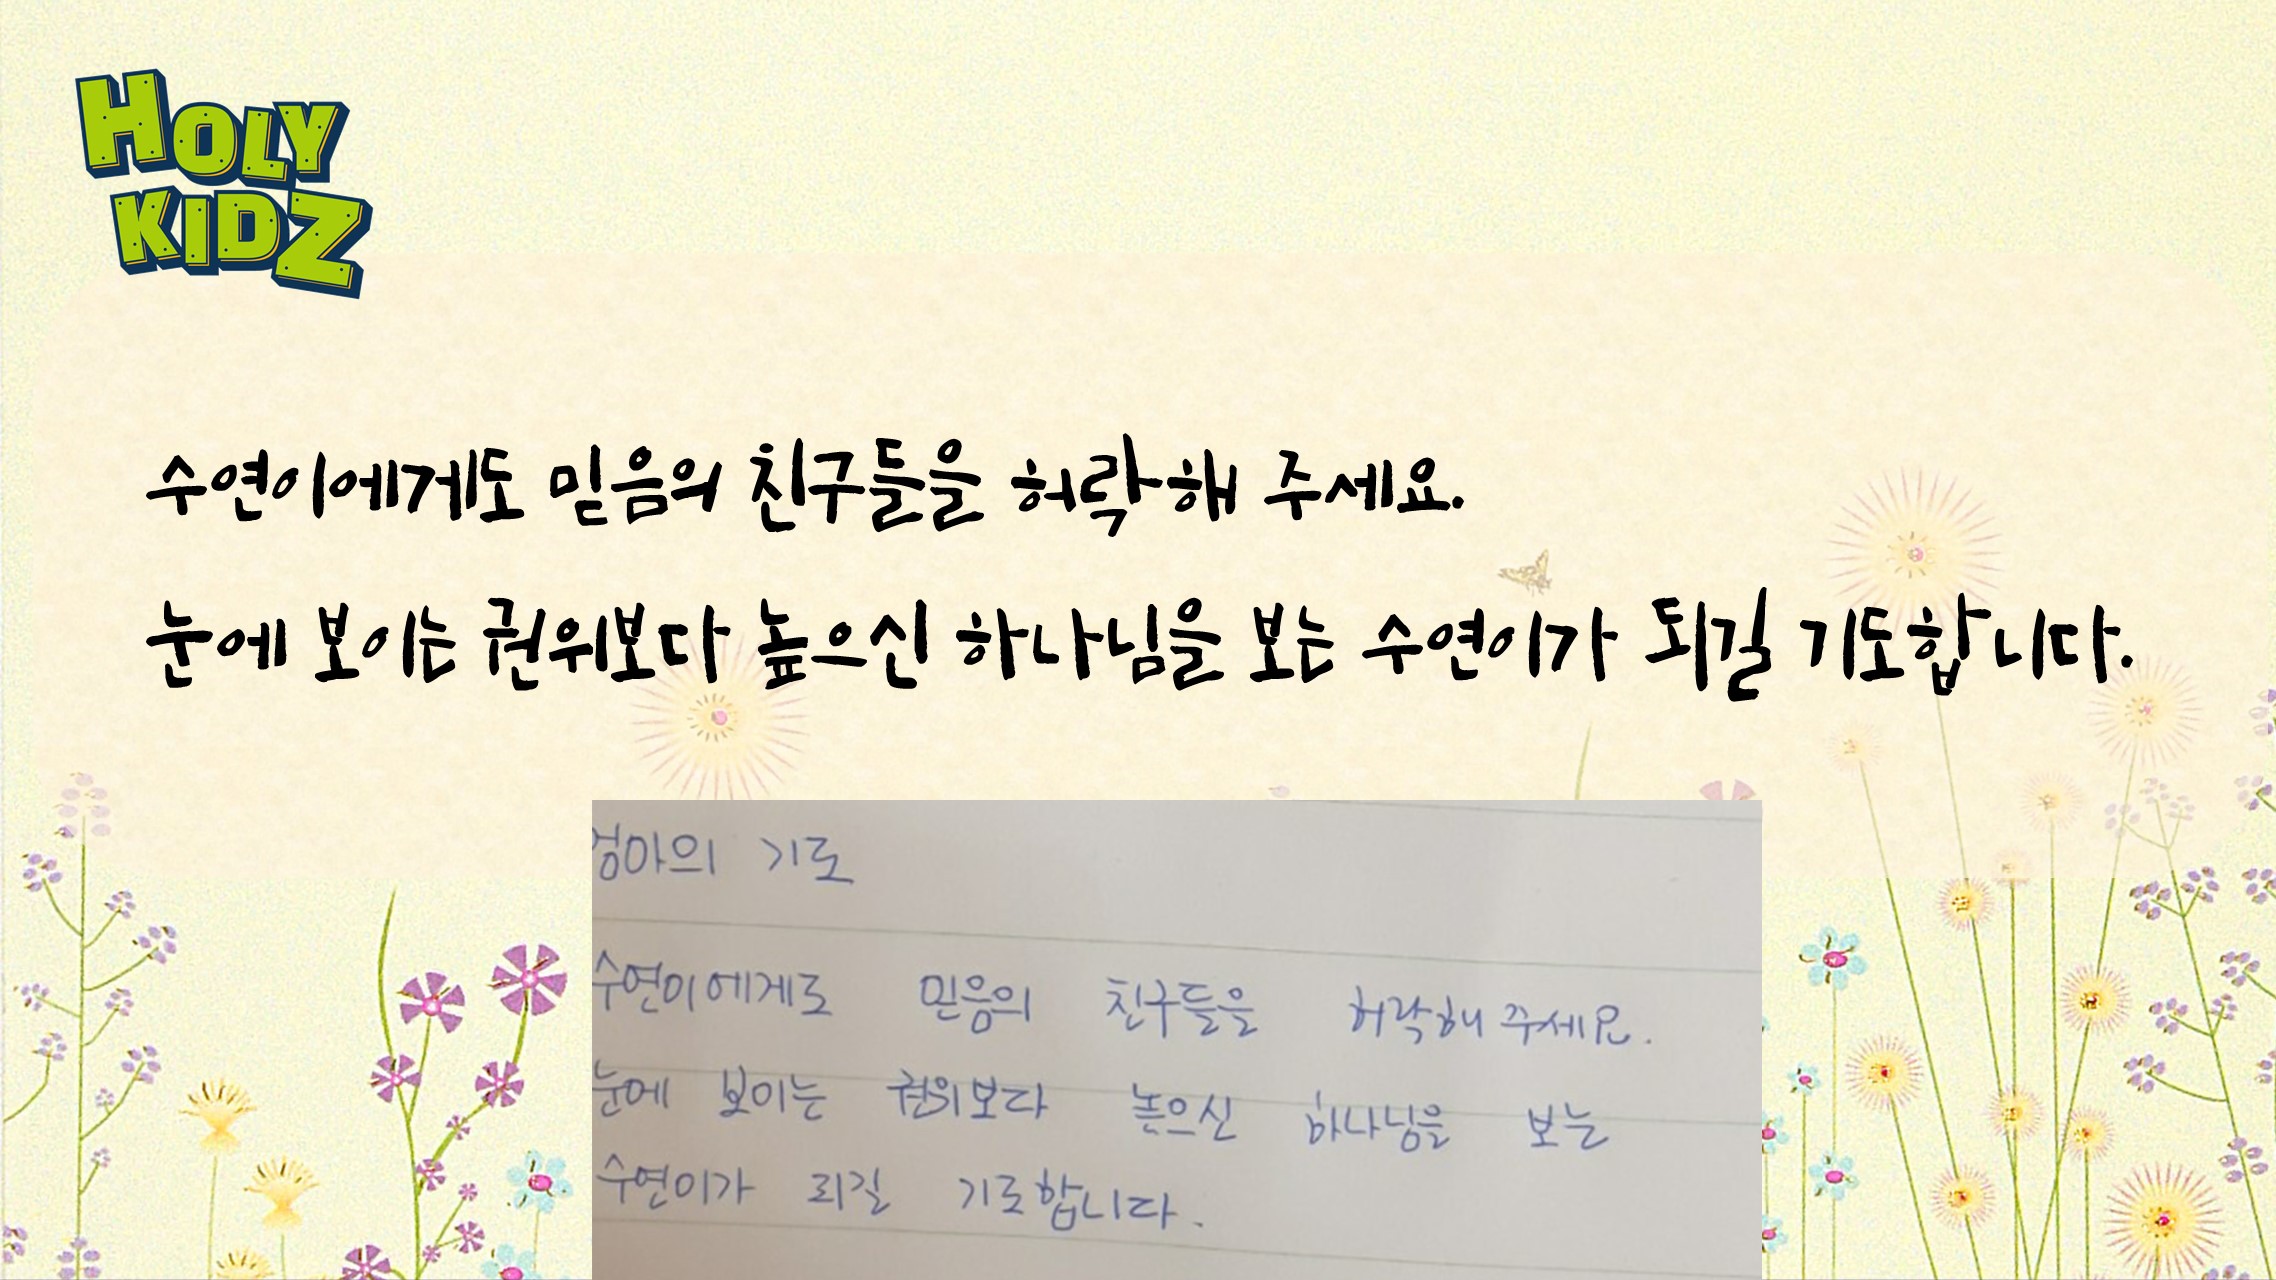 HOLY
KIDZ
수연이에게도 믿음의 친구들을 허락해 주세요.
눈에 보이는 권위보다 높으신 하나님을 보는 수연이가 되길 기도합니다.
엄마의 기도
수연이에게도 믿음의 친구들을 허락해 주세요.
눈에 보이는 권위보다 높으신 하나님을 보는
수연이가 되길 기도합니다.